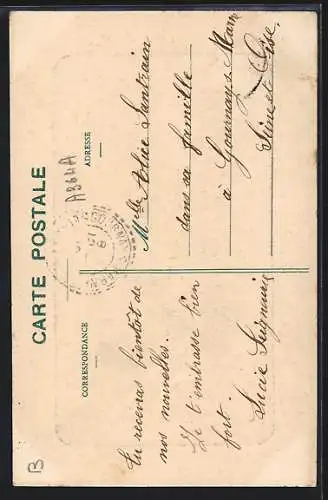 CARTE POSTALE
CORRESPONDANCE
ADRESSE
A864A
Tu recevras bientôt de
nos nouvelles.
Je t'embrasse bien
fort.
Lucie
Mlle Alice Santrain
dans sa famille
à Gournay s. Marne
Seine et Oise.
B